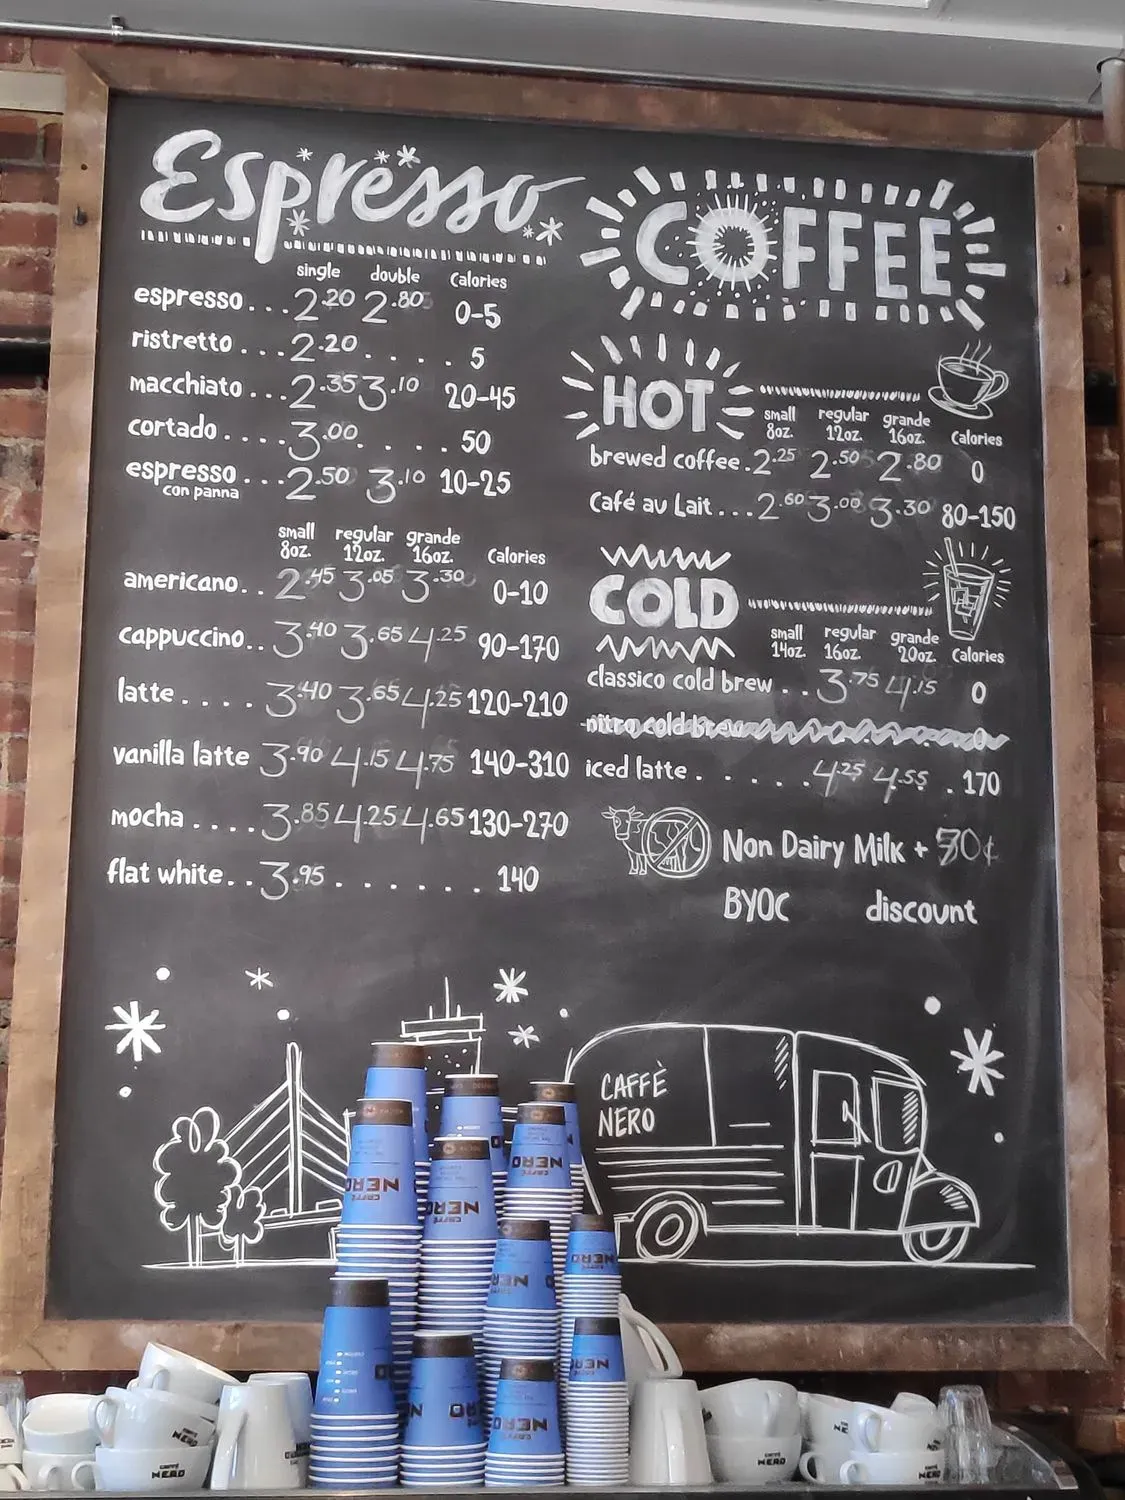 Espresso
single double Calories
espresso... 2.20 2.80 0-5
ristretto ... 2.20 . . . . 5
macchiato ... 2.35 3.10 20-45
cortado .... 3.00 . . . . 50
espresso ... 2.50 3.10 10-25
con panna
small regular grande
8oz. 12oz. 16oz. Calories
americano.. 2.45 3.05 3.30 0-10
cappuccino.. 3.40 3.65 4.25 90-170
latte .... 3.40 3.65 4.25 120-210
vanilla latte 3.90 4.15 4.75 140-310
mocha .... 3.85 4.25 4.65 130-270
flat white.. 3.95 . . . . . . . 140
COFFEE
HOT
small regular grande
8oz. 12oz. 16oz. Calories
brewed coffee. 2.25 2.50 2.80 0
Café au Lait ... 2.60 3.00 3.30 80-150
COLD
small regular grande
14oz. 16oz. 20oz. Calories
classico cold brew .. 3.75 4.15 0
nitro cold brew 0
iced latte . . . . . 4.25 4.55 . 170
Non Dairy Milk + 70¢
BYOC discount
CAFFÈ
NERO
CAFFÈ
NERO
CAFFÈ
NERO
CAFFÈ
NERO
NERO
NERO
NERO
NERO
NERO
CAFFÈ
NERO
CAFFÈ
NERO
CAFFÈ
NERO